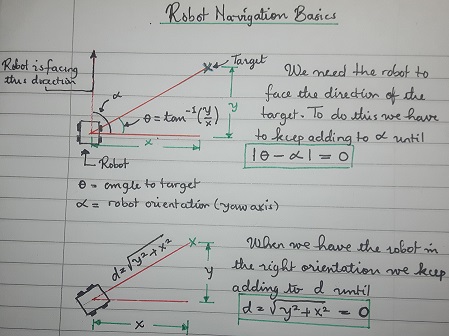 Robot Navigation Basics
Robot is facing
this direction
Target
α
θ = tan⁻¹(y/x)
y
x
Robot
We need the robot to
face the direction of the
target. To do this we have
to keep adding to α until
|θ - α| = 0
θ = angle to target
α = robot orientation (yaw axis)
d = √y² + x²
y
x
When we have the robot in
the right orientation we keep
adding to d until
d = √y² + x² = 0